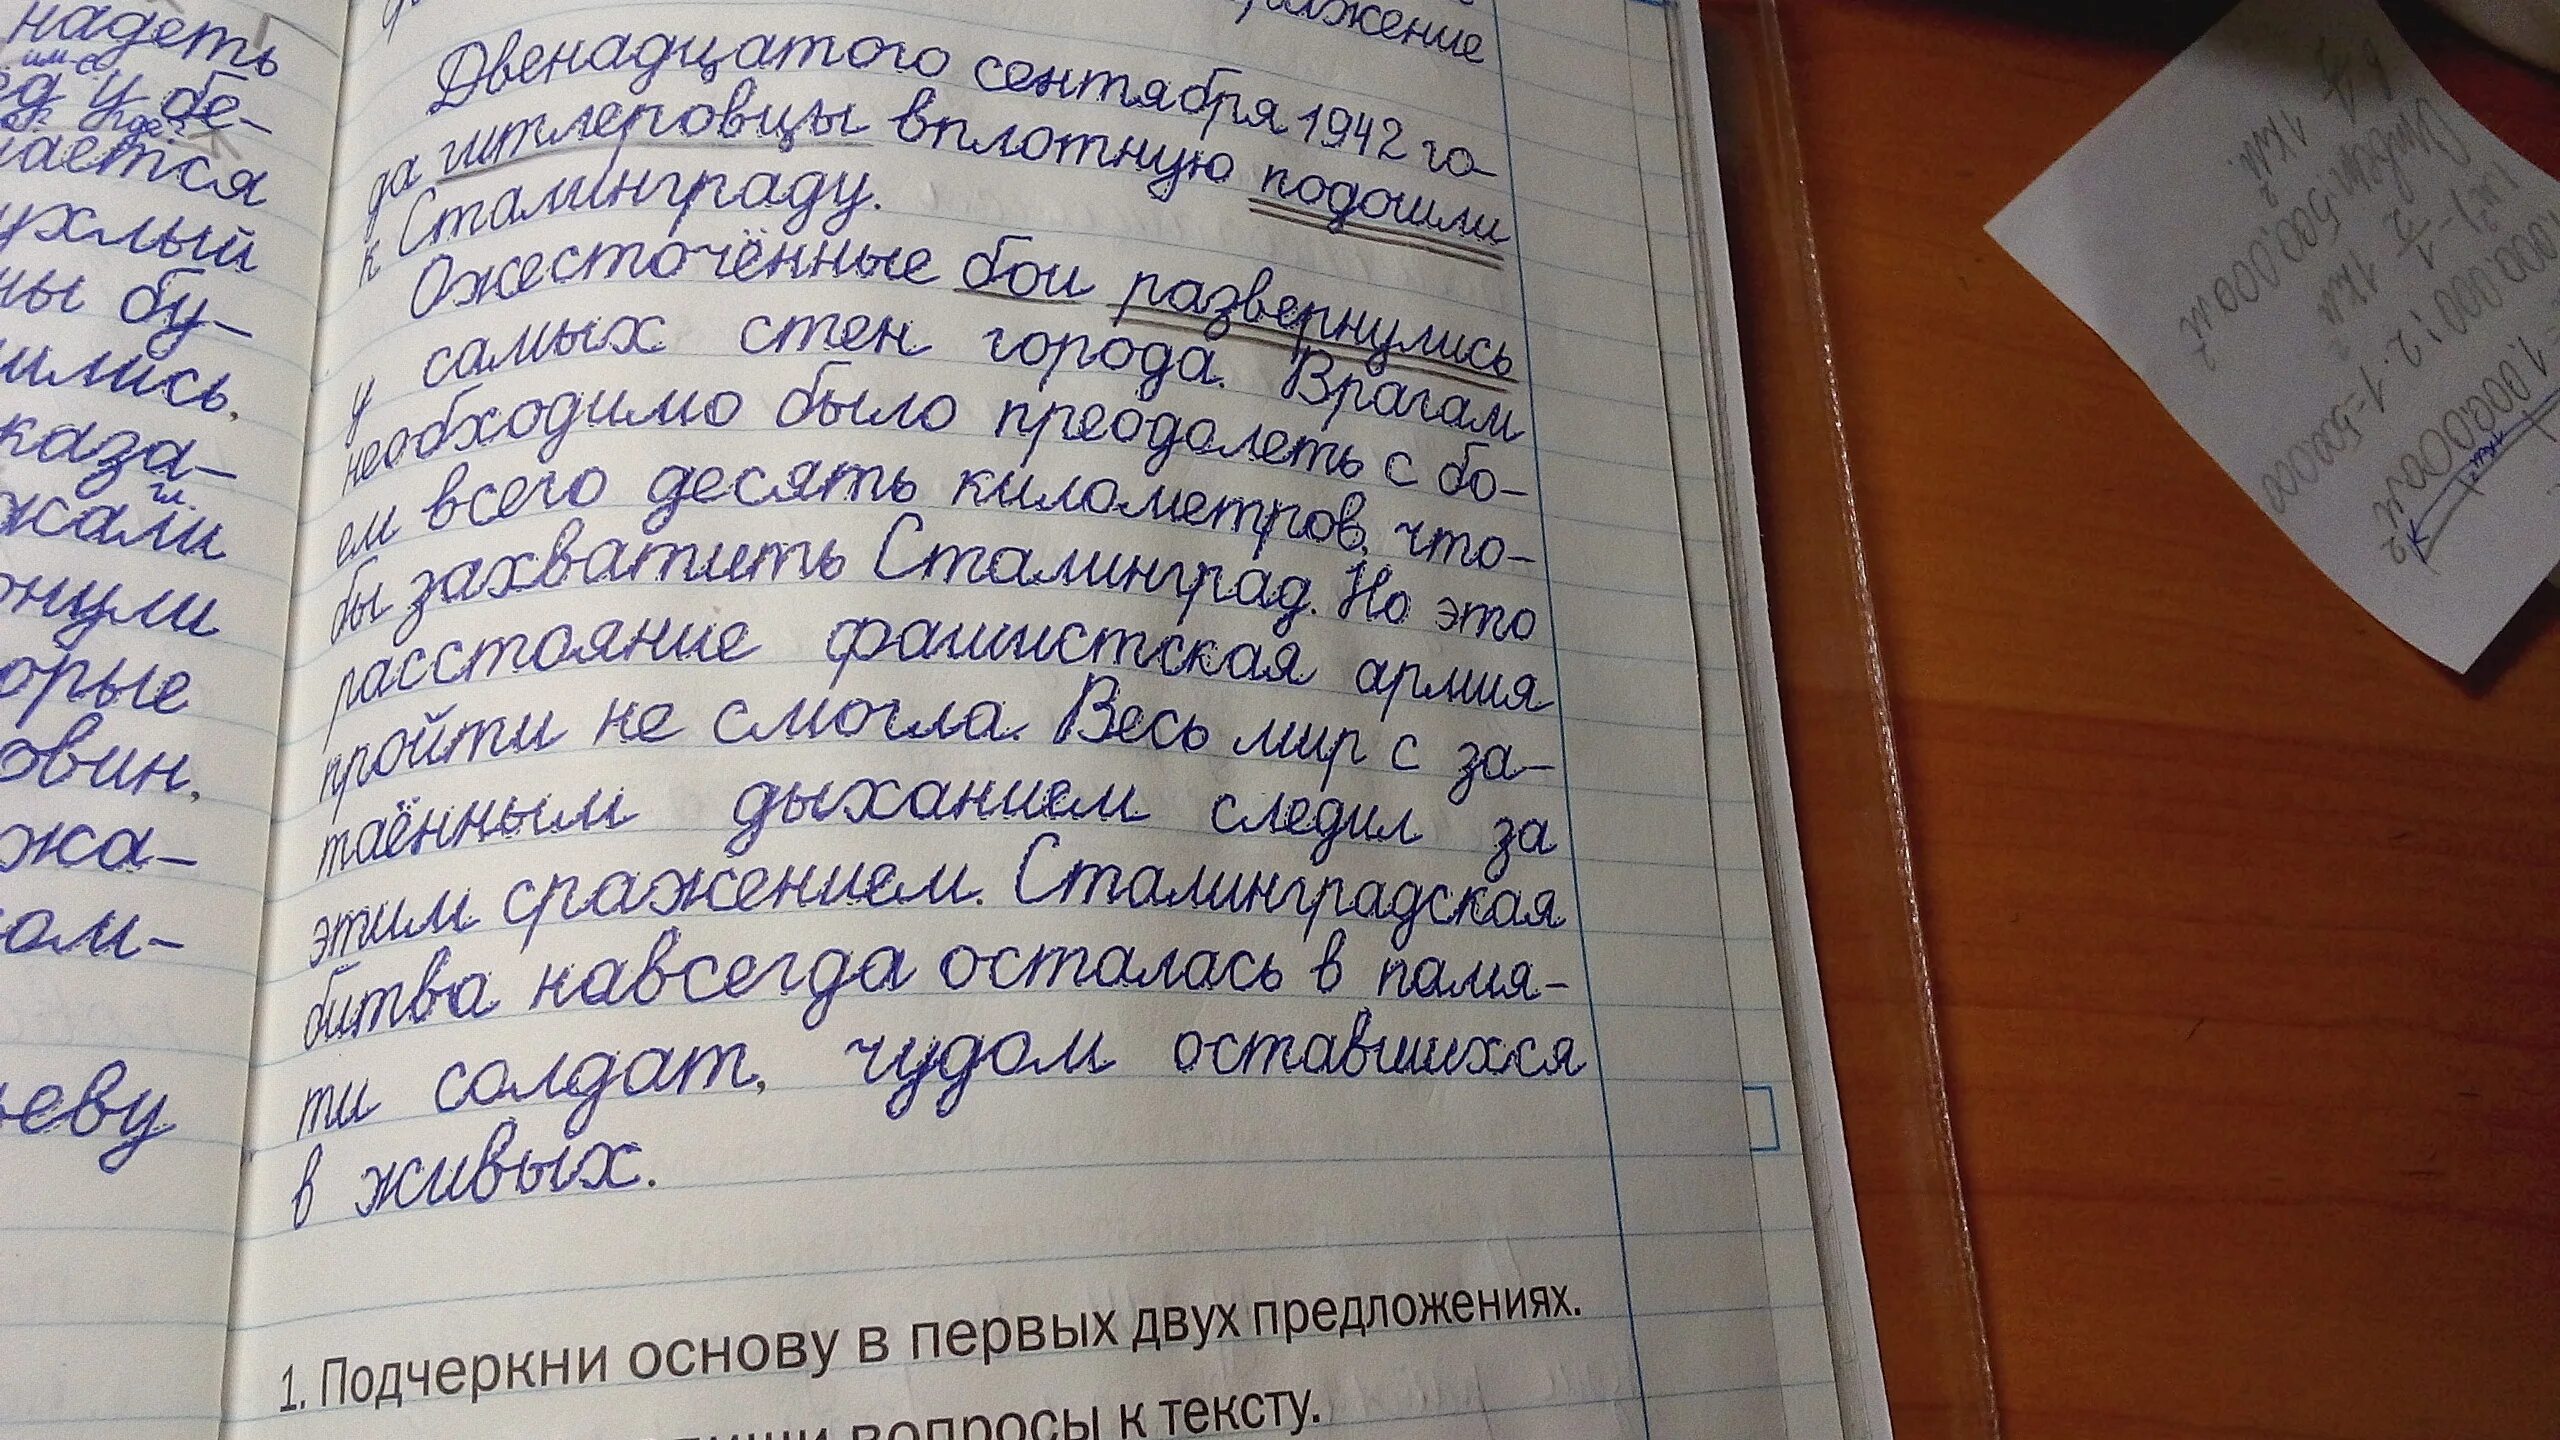 надеть
у бе-
ухлый
ны бу-
ились.
каза-
жали
нули
орые
овин.
жа-
ом-
ьеву
ражение
Двенадцатого сентября 1942 го-
да гитлеровцы вплотную подошли
к Сталинграду.
Ожесточённые бои развернулись
у самых стен города. Врагам
необходимо было преодолеть с бо-
ем всего десять километров, что-
бы захватить Сталинград. Но это
расстояние фашистская армия
пройти не смогла. Весь мир с за-
таённым дыханием следил за
этим сражением. Сталинградская
битва навсегда осталась в памя-
ти солдат, чудом оставшихся
в живых.
1. Подчеркни основу в первых двух предложениях.
вопросы к тексту.